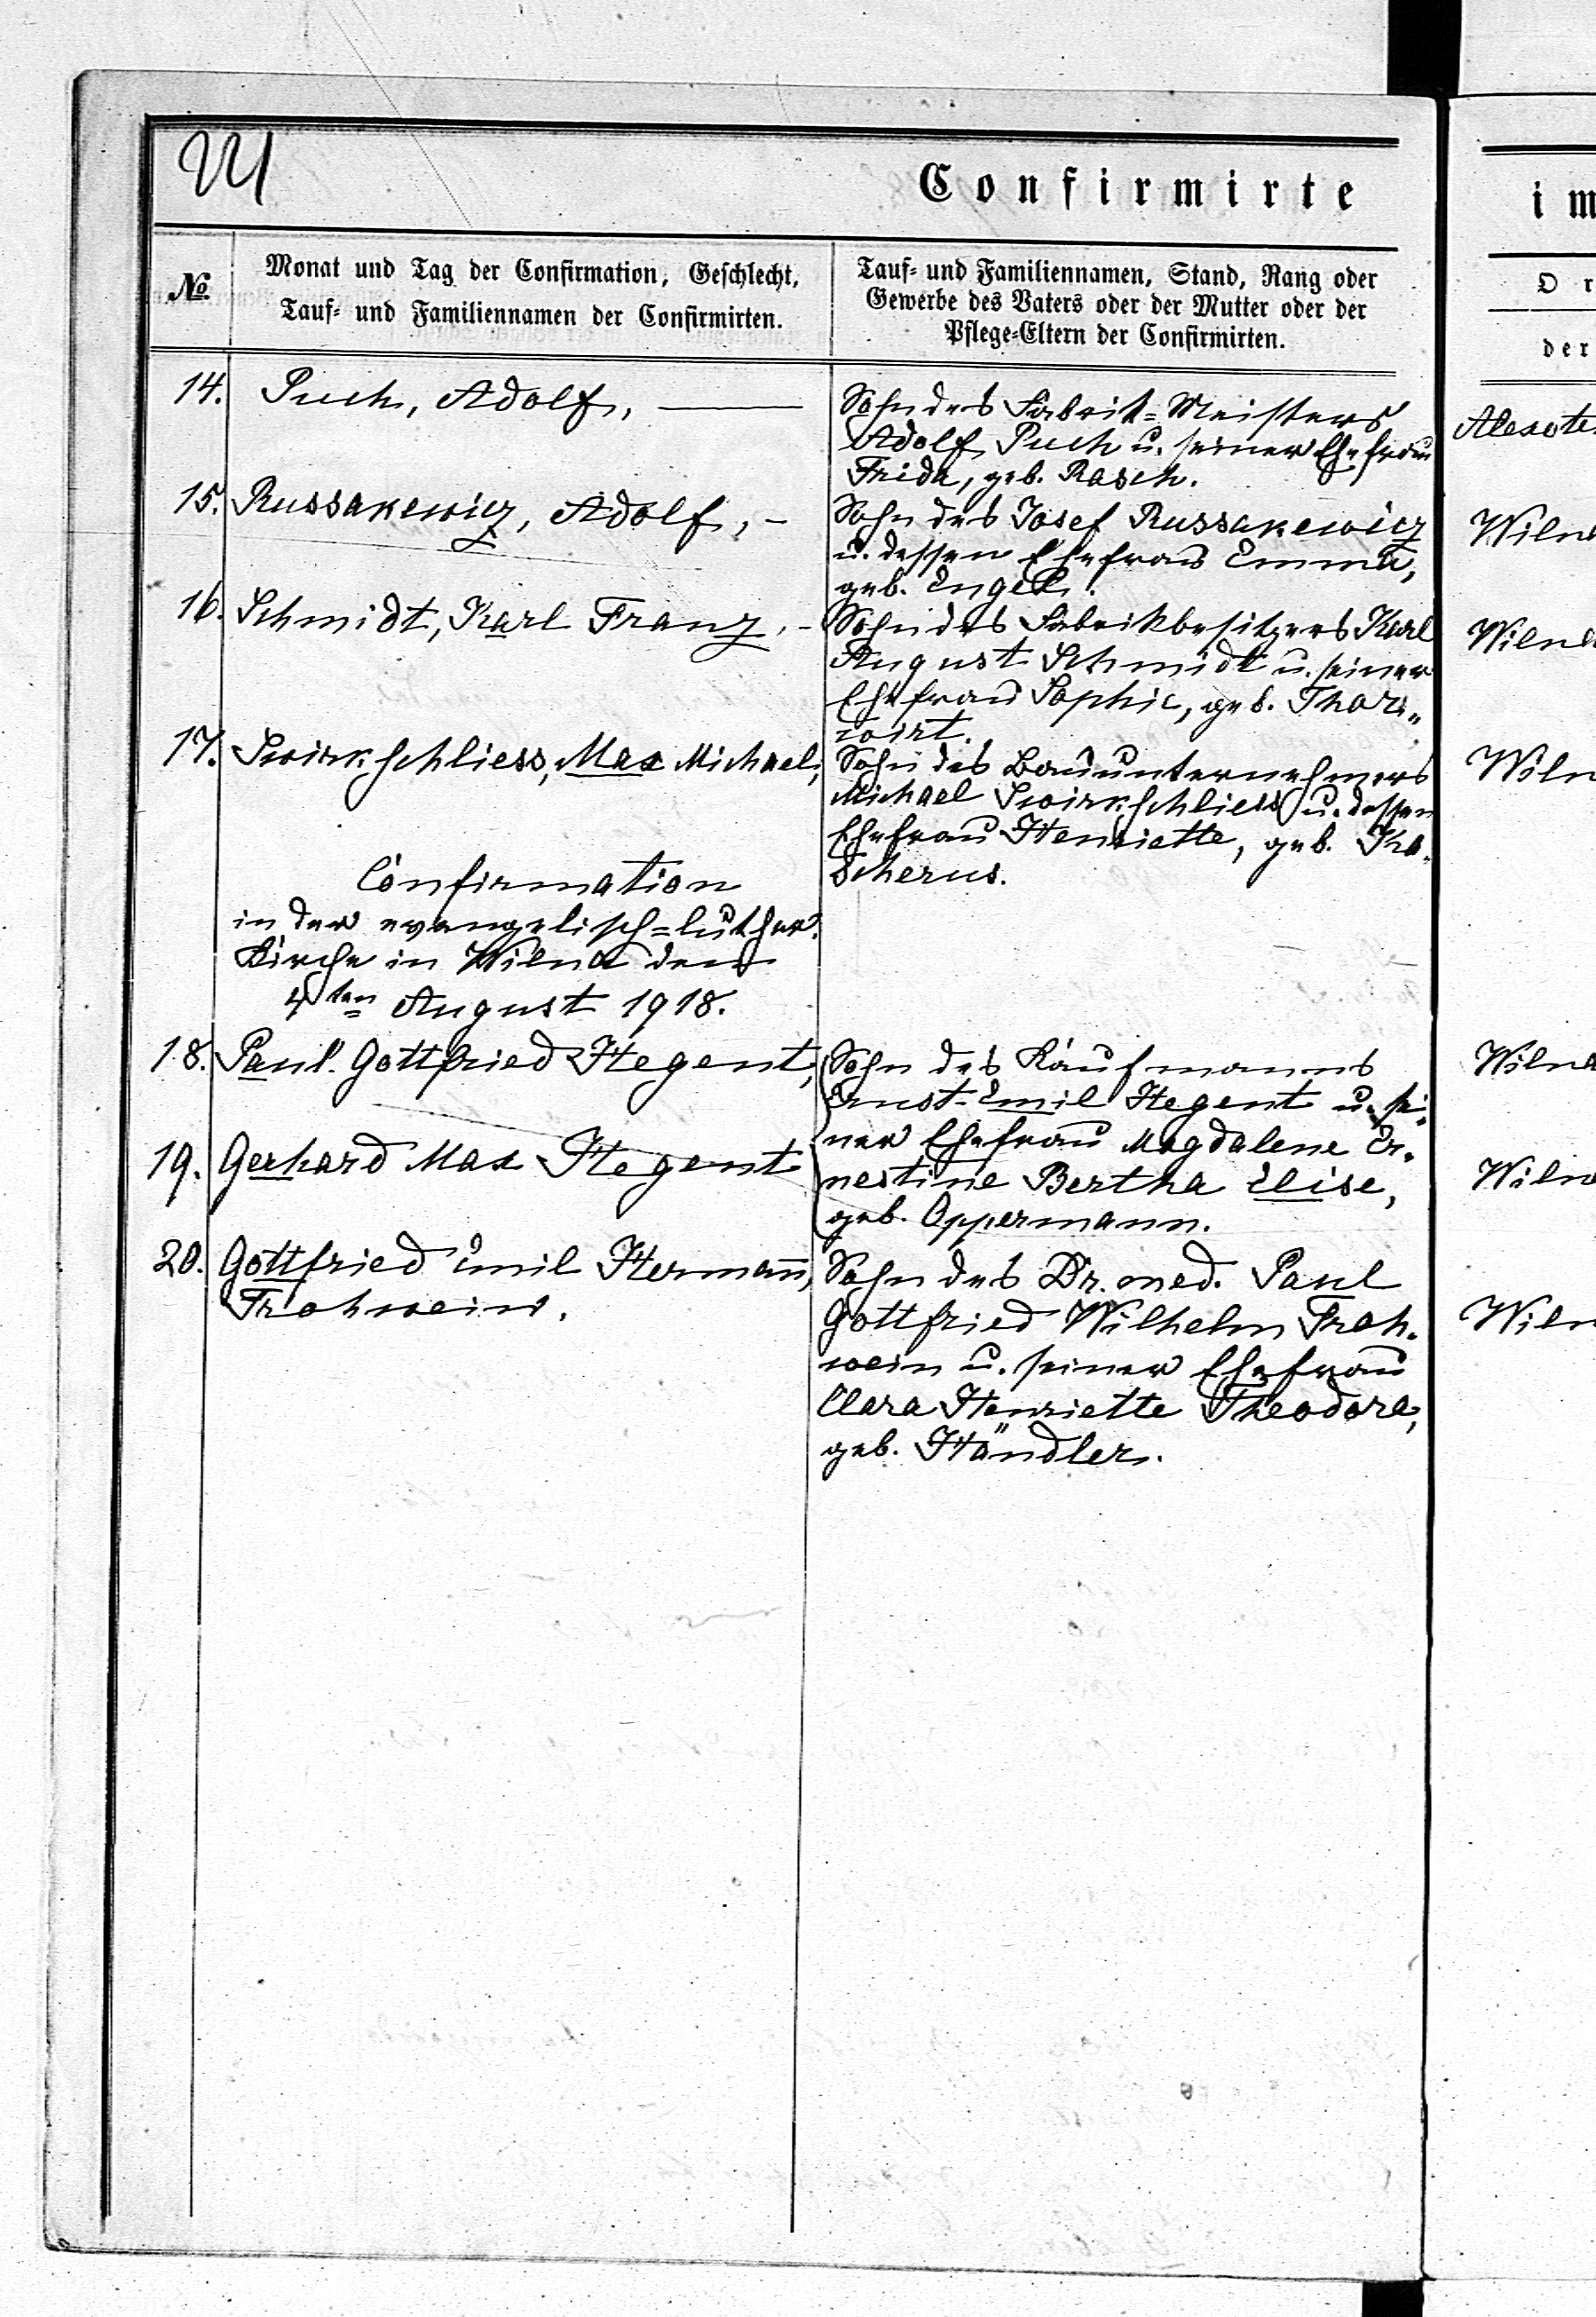 Confirmirte
im
№
Monat und Tag der Confirmation, Geschlecht,
Tauf- und Familiennamen der Confirmirten.
Tauf- und Familiennamen, Stand, Rang oder
Gewerbe des Vaters oder der Mutter oder der
Pflege-Eltern der Confirmirten.
O r
der
14. Puch, Adolf, —
Sohn des Fabrik-Meisters
Adolf Puch u. seiner Ehefrau
Frida, geb. Rasch.
15. Russakewicz, Adolf, –
Sohn des Josef Russakewicz
u. dessen Ehefrau Emma,
geb. Engel.
Wilna
16. Schmidt, Karl Franz, –
Sohn des Fabrikbesitzers Karl
August Schmidt u. seiner
Ehefrau Sophie, geb. Thori„
wirt.
Wilna
17. Swirkschliess, Max Michael,
Sohn des Bauunternehmers
Michael Swirkschliess u. dessen
Ehefrau Henriette, geb. Ka-
scherus.
Wiln
Confirmation
in der evangelisch=luther.
Kirche in Wilna den
4ten August 1918.
18. Paul Gottfried Hegent,
19. Gerhard Max Hegent
Sohn des Kaufmanns
Ernst-Emil Hegent u. sei-
ner Ehefrau Magdalene Er-
nestine Bertha Elise,
geb. Oppermann.
Wilna
Wilna
20. Gottfried Emil Hermann,
Frohwein.
Sohn des Dr. med. Paul
Gottfried Wilhelm Froh-
wein u. seiner Ehefrau
Clara Henriette Theodora,
geb. Händler.
Wiln